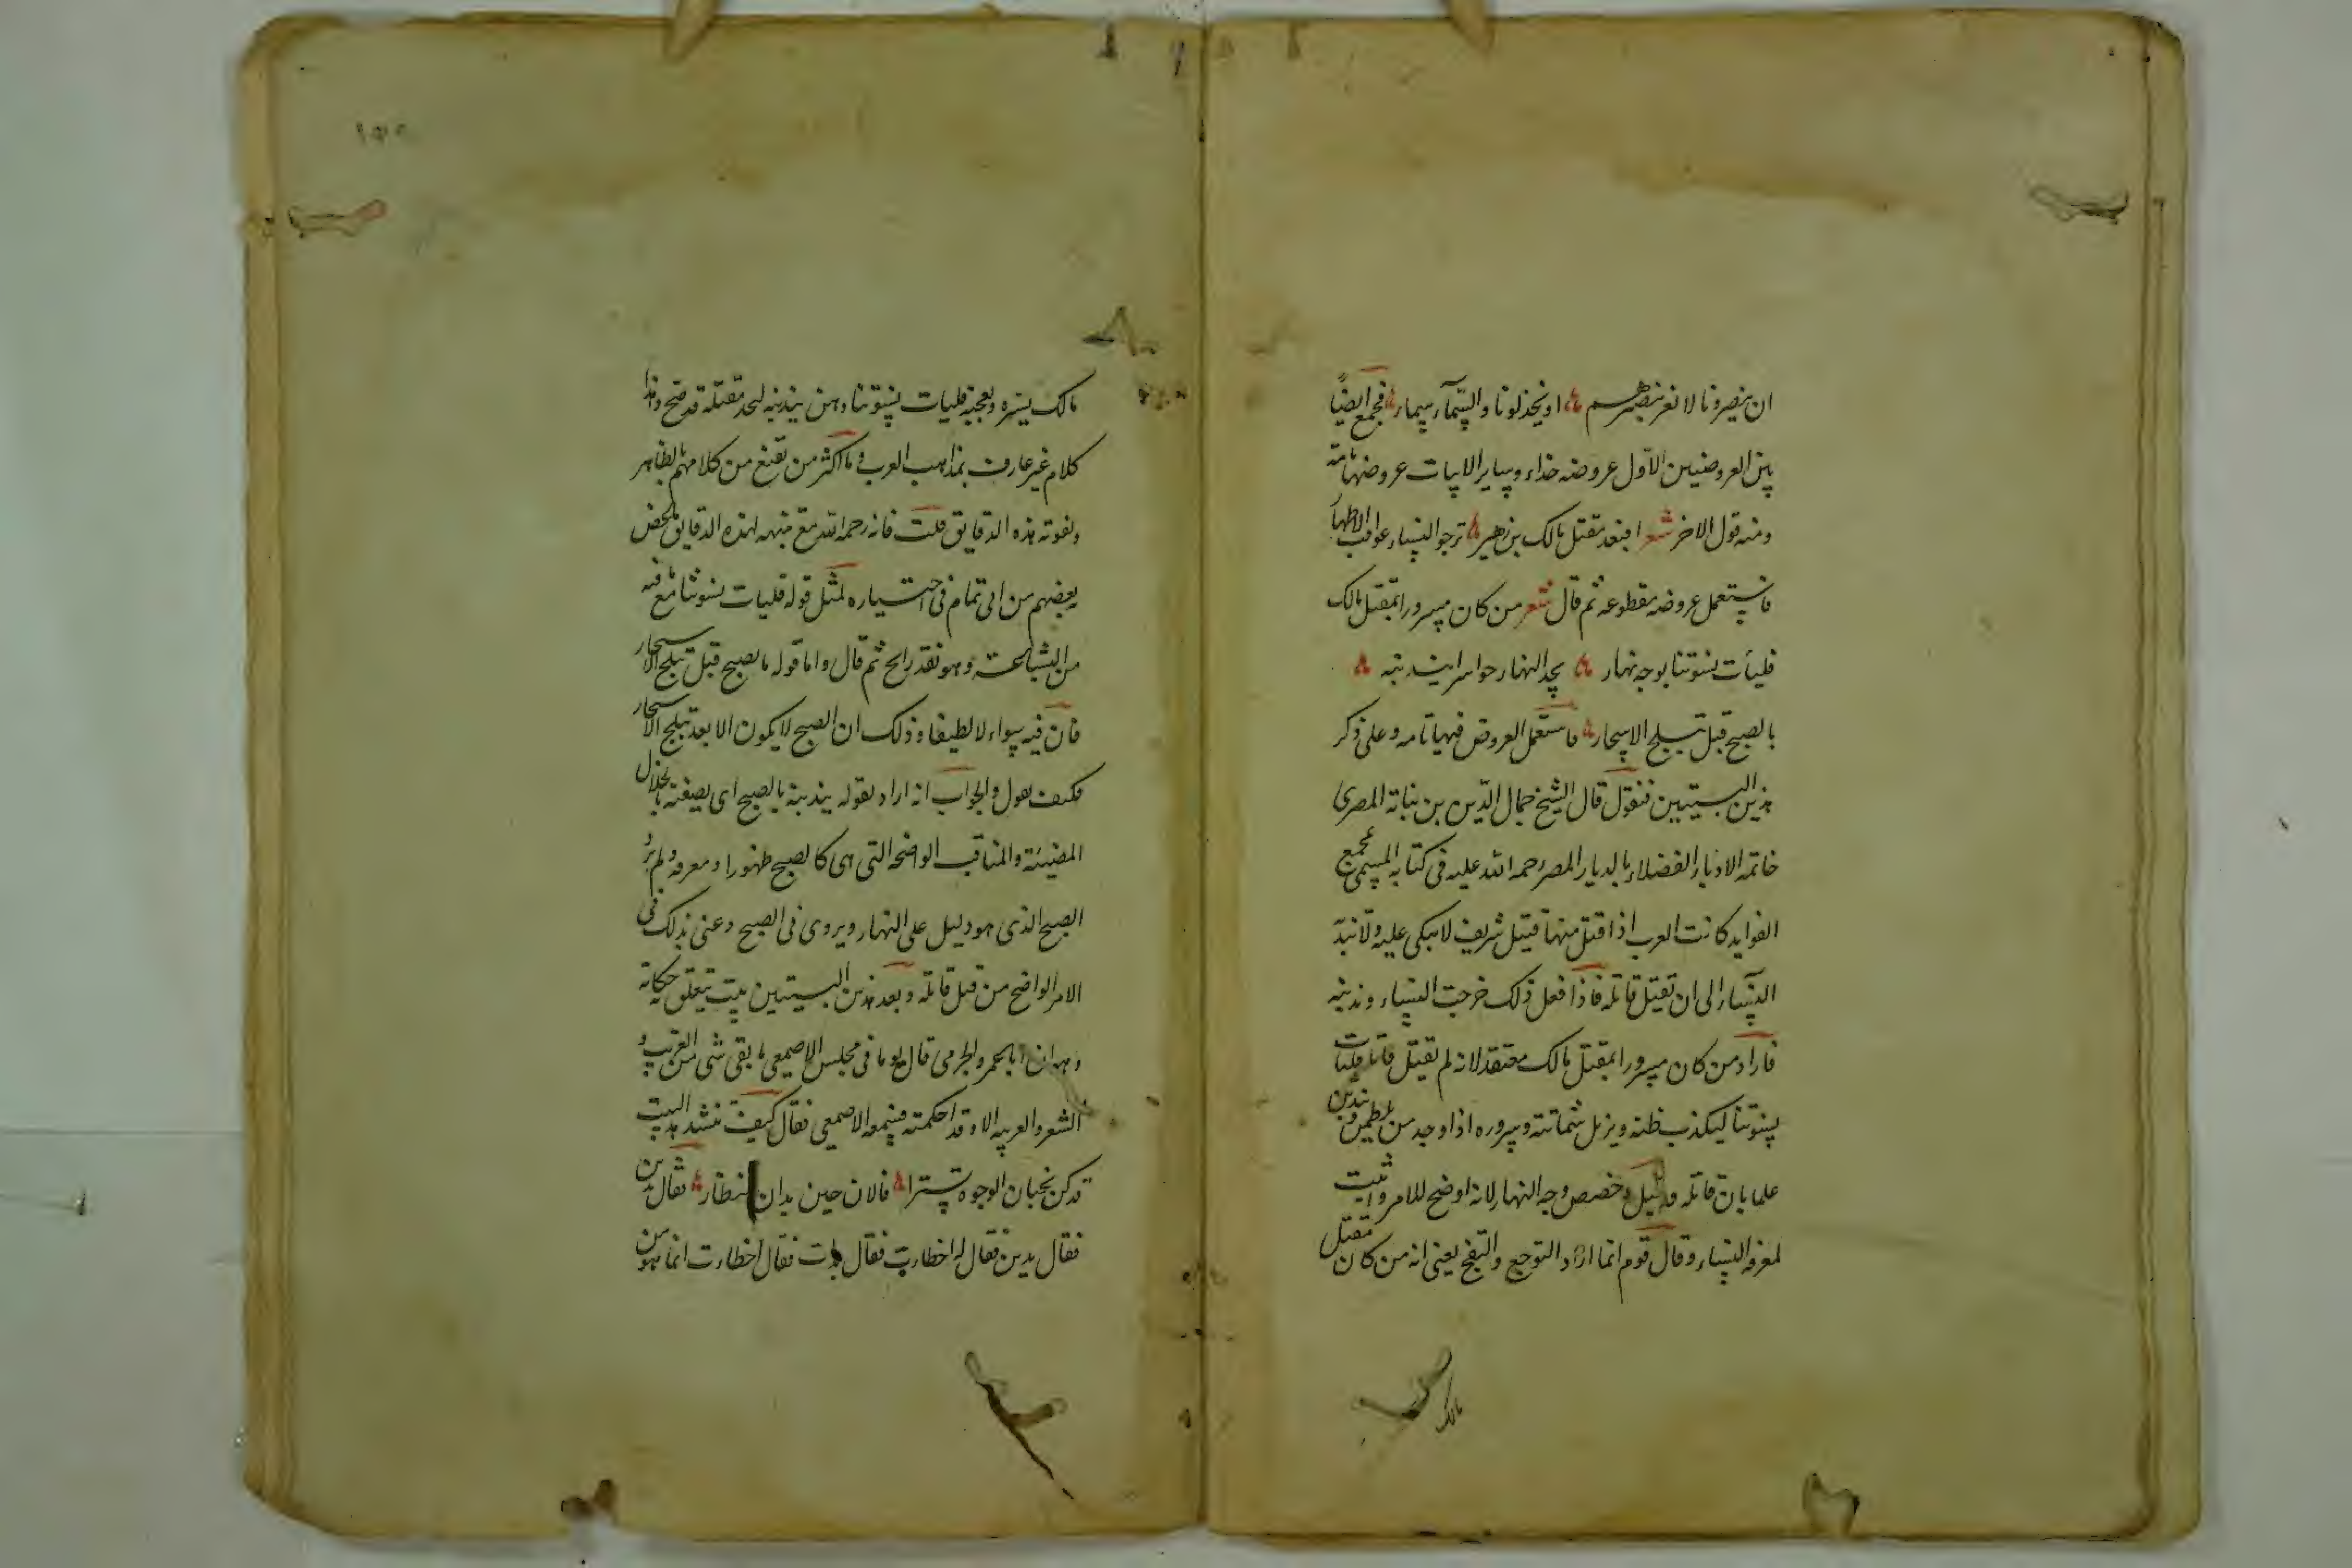 ان ينصرونا لا نعز بنصرهم او يخذلونا والسماء سماء فجمع ايضا
بين العروضين الاول عروضه حذاء وساير الابيات عروضها تامة
ومنه قول الاخر شعر افبعد مقتل مالك بن زهير ترجو النساء عواقب الاطهار
فاستعمل عروضه مقطوعه ثم قال شعر من كان مسرورا بمقتل مالك
فليأت نسوتنا بوجه نهار يجد النهار حواسرا يندبنه
بالصبح قبل تبلج الاسحار فاستعمل العروض فيها تامه وعلى ذكر
هذين البيتين فنقول قال الشيخ جمال الدين بن نباتة المصرى
خاتمه الادباء الفضلاء بالديار المصر رحمه الله عليه فى كتابه المسمى بمجمع
الفوايد كانت العرب اذا قتل منها قتيل شريف لا تبكى عليه ولا تندبه
النساء الى ان تقتل قاتله فاذا فعل ذلك خرجت النساء وندبنه
فاراد من كان مسرورا بمقتل مالك معتقد لانه لم يقتل قاتله فليات
نسوتنا ليكذب ظنه ويزيل شماتته وسروره اذا وجد من يلطمن ويندبن
علما بان قاتله قد قتل وخصص وجه النهار لانه اوضح للامر واثبت
لمعرفه النساء وقال قوم انما اراد التوجع والتفجع يعنى انه من كان مقتل
مالك
مالك يسره ويعجبه فليات نسوتنا وهن يندبنه ليجد مقتله قد صح وهذا
كلام غير عارف بمذاهب العرب وما اكثر من تقنع من كلامهم بالظاهر
وتفوته هذه الدقايق قلت فانه رحمه الله مع تنبهه لهذه الدقايق محض
بعضهم من ابى تمام فى اختياره لمثل قوله فليات نسوتنا مع ما فيه
من الشباعة وهو نقد رابح ثم قال واما قوله بالصبح قبل تبلج الاسحار
فان فيه سواء لا لطيفا وذلك ان الصبح لا يكون الا بعد تبلج الاسحار
فكيف يقول والجواب انه اراد بقوله يندبنه بالصبح اى يصفنه بالخلال
المضيئة والمناقب الواضحة التى هى كالصبح ظهورا ومعرفه ولم يرد
الصبح الذى هو دليل على النهار ويروى فى الصبح وعنى بذلك فى
الامر الواضح من قتل قاتله وبعد هذين البيتين بيت يتعلق بحكاية
وهو ان ابا عمرو الجرمى قال يوما فى مجلس الاصمعى ما بقى شى من الغريب و
الشعر والعربيه الا وقد احكمته فسمعه الاصمعى فقال كيف تنشد هذا البيت
قد كن يخبأن الوجوه تسترا فالان حين بدأن للنظار فقال بدين
فقال بدين فقال له اخطات فقال بدأت فقال اخطات انما هو من